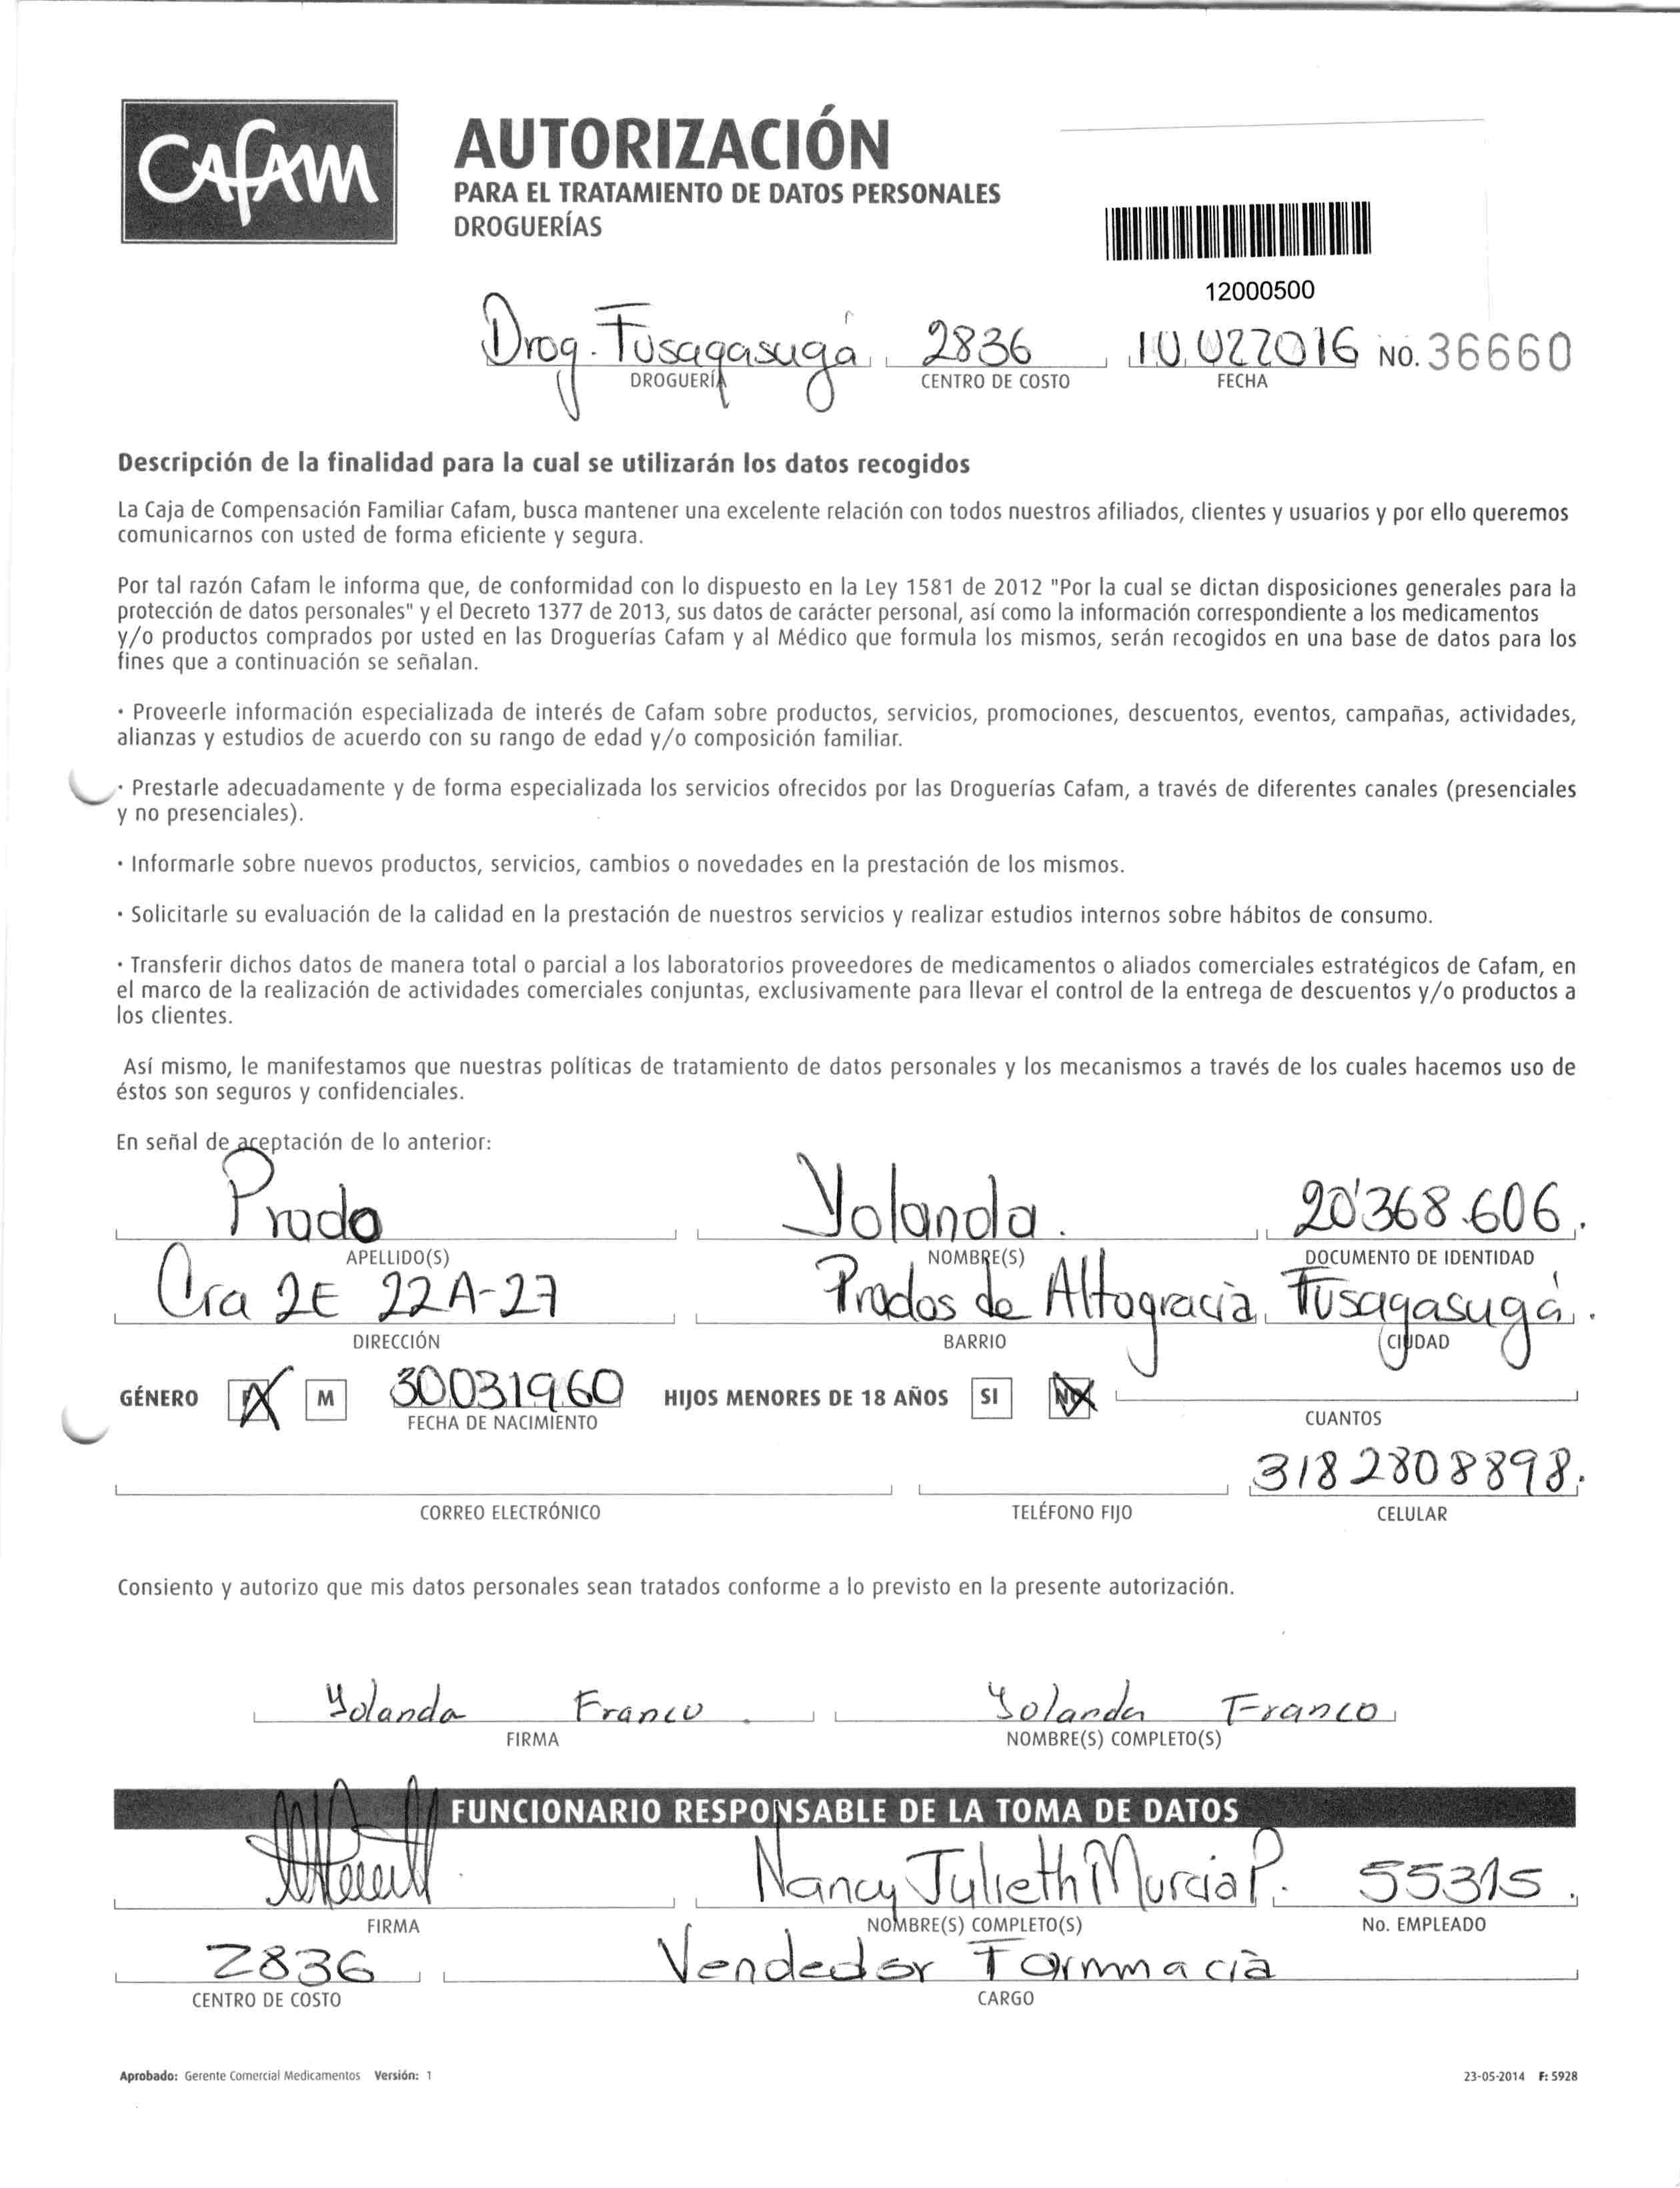 CAFAM
AUTORIZACIÓN
PARA EL TRATAMIENTO DE DATOS PERSONALES
DROGUERÍAS
12000500
Drog. Fusagasugá 2836 10 02 2016 NO. 36660
DROGUERÍA CENTRO DE COSTO FECHA
Descripción de la finalidad para la cual se utilizarán los datos recogidos
La Caja de Compensación Familiar Cafam, busca mantener una excelente relación con todos nuestros afiliados, clientes y usuarios y por ello queremos
comunicarnos con usted de forma eficiente y segura.
Por tal razón Cafam le informa que, de conformidad con lo dispuesto en la Ley 1581 de 2012 "Por la cual se dictan disposiciones generales para la
protección de datos personales" y el Decreto 1377 de 2013, sus datos de carácter personal, así como la información correspondiente a los medicamentos
y/o productos comprados por usted en las Droguerías Cafam y al Médico que formula los mismos, serán recogidos en una base de datos para los
fines que a continuación se señalan.
· Proveerle información especializada de interés de Cafam sobre productos, servicios, promociones, descuentos, eventos, campañas, actividades,
alianzas y estudios de acuerdo con su rango de edad y/o composición familiar.
· Prestarle adecuadamente y de forma especializada los servicios ofrecidos por las Droguerías Cafam, a través de diferentes canales (presenciales
y no presenciales).
· Informarle sobre nuevos productos, servicios, cambios o novedades en la prestación de los mismos.
· Solicitarle su evaluación de la calidad en la prestación de nuestros servicios y realizar estudios internos sobre hábitos de consumo.
· Transferir dichos datos de manera total o parcial a los laboratorios proveedores de medicamentos o aliados comerciales estratégicos de Cafam, en
el marco de la realización de actividades comerciales conjuntas, exclusivamente para llevar el control de la entrega de descuentos y/o productos a
los clientes.
Así mismo, le manifestamos que nuestras políticas de tratamiento de datos personales y los mecanismos a través de los cuales hacemos uso de
éstos son seguros y confidenciales.
En señal de aceptación de lo anterior:
Prado Yolanda. 20'368.606.
APELLIDO(S) NOMBRE(S) DOCUMENTO DE IDENTIDAD
Cra 2E 22A-27 Prados de Altagracia Fusagasugá.
DIRECCIÓN BARRIO CIUDAD
GÉNERO F M 30031960 HIJOS MENORES DE 18 AÑOS SI NO
FECHA DE NACIMIENTO CUANTOS
3182808898.
CORREO ELECTRÓNICO TELÉFONO FIJO CELULAR
Consiento y autorizo que mis datos personales sean tratados conforme a lo previsto en la presente autorización.
Yolanda Franco Yolanda Franco
FIRMA NOMBRE(S) COMPLETO(S)
FUNCIONARIO RESPONSABLE DE LA TOMA DE DATOS
Nancy Julieth Murcia P. 55315.
FIRMA NOMBRE(S) COMPLETO(S) No. EMPLEADO
2836 Vendedor Farmacia
CENTRO DE COSTO CARGO
Aprobado: Gerente Comercial Medicamentos Versión: 1 23-05-2014 F: 5928